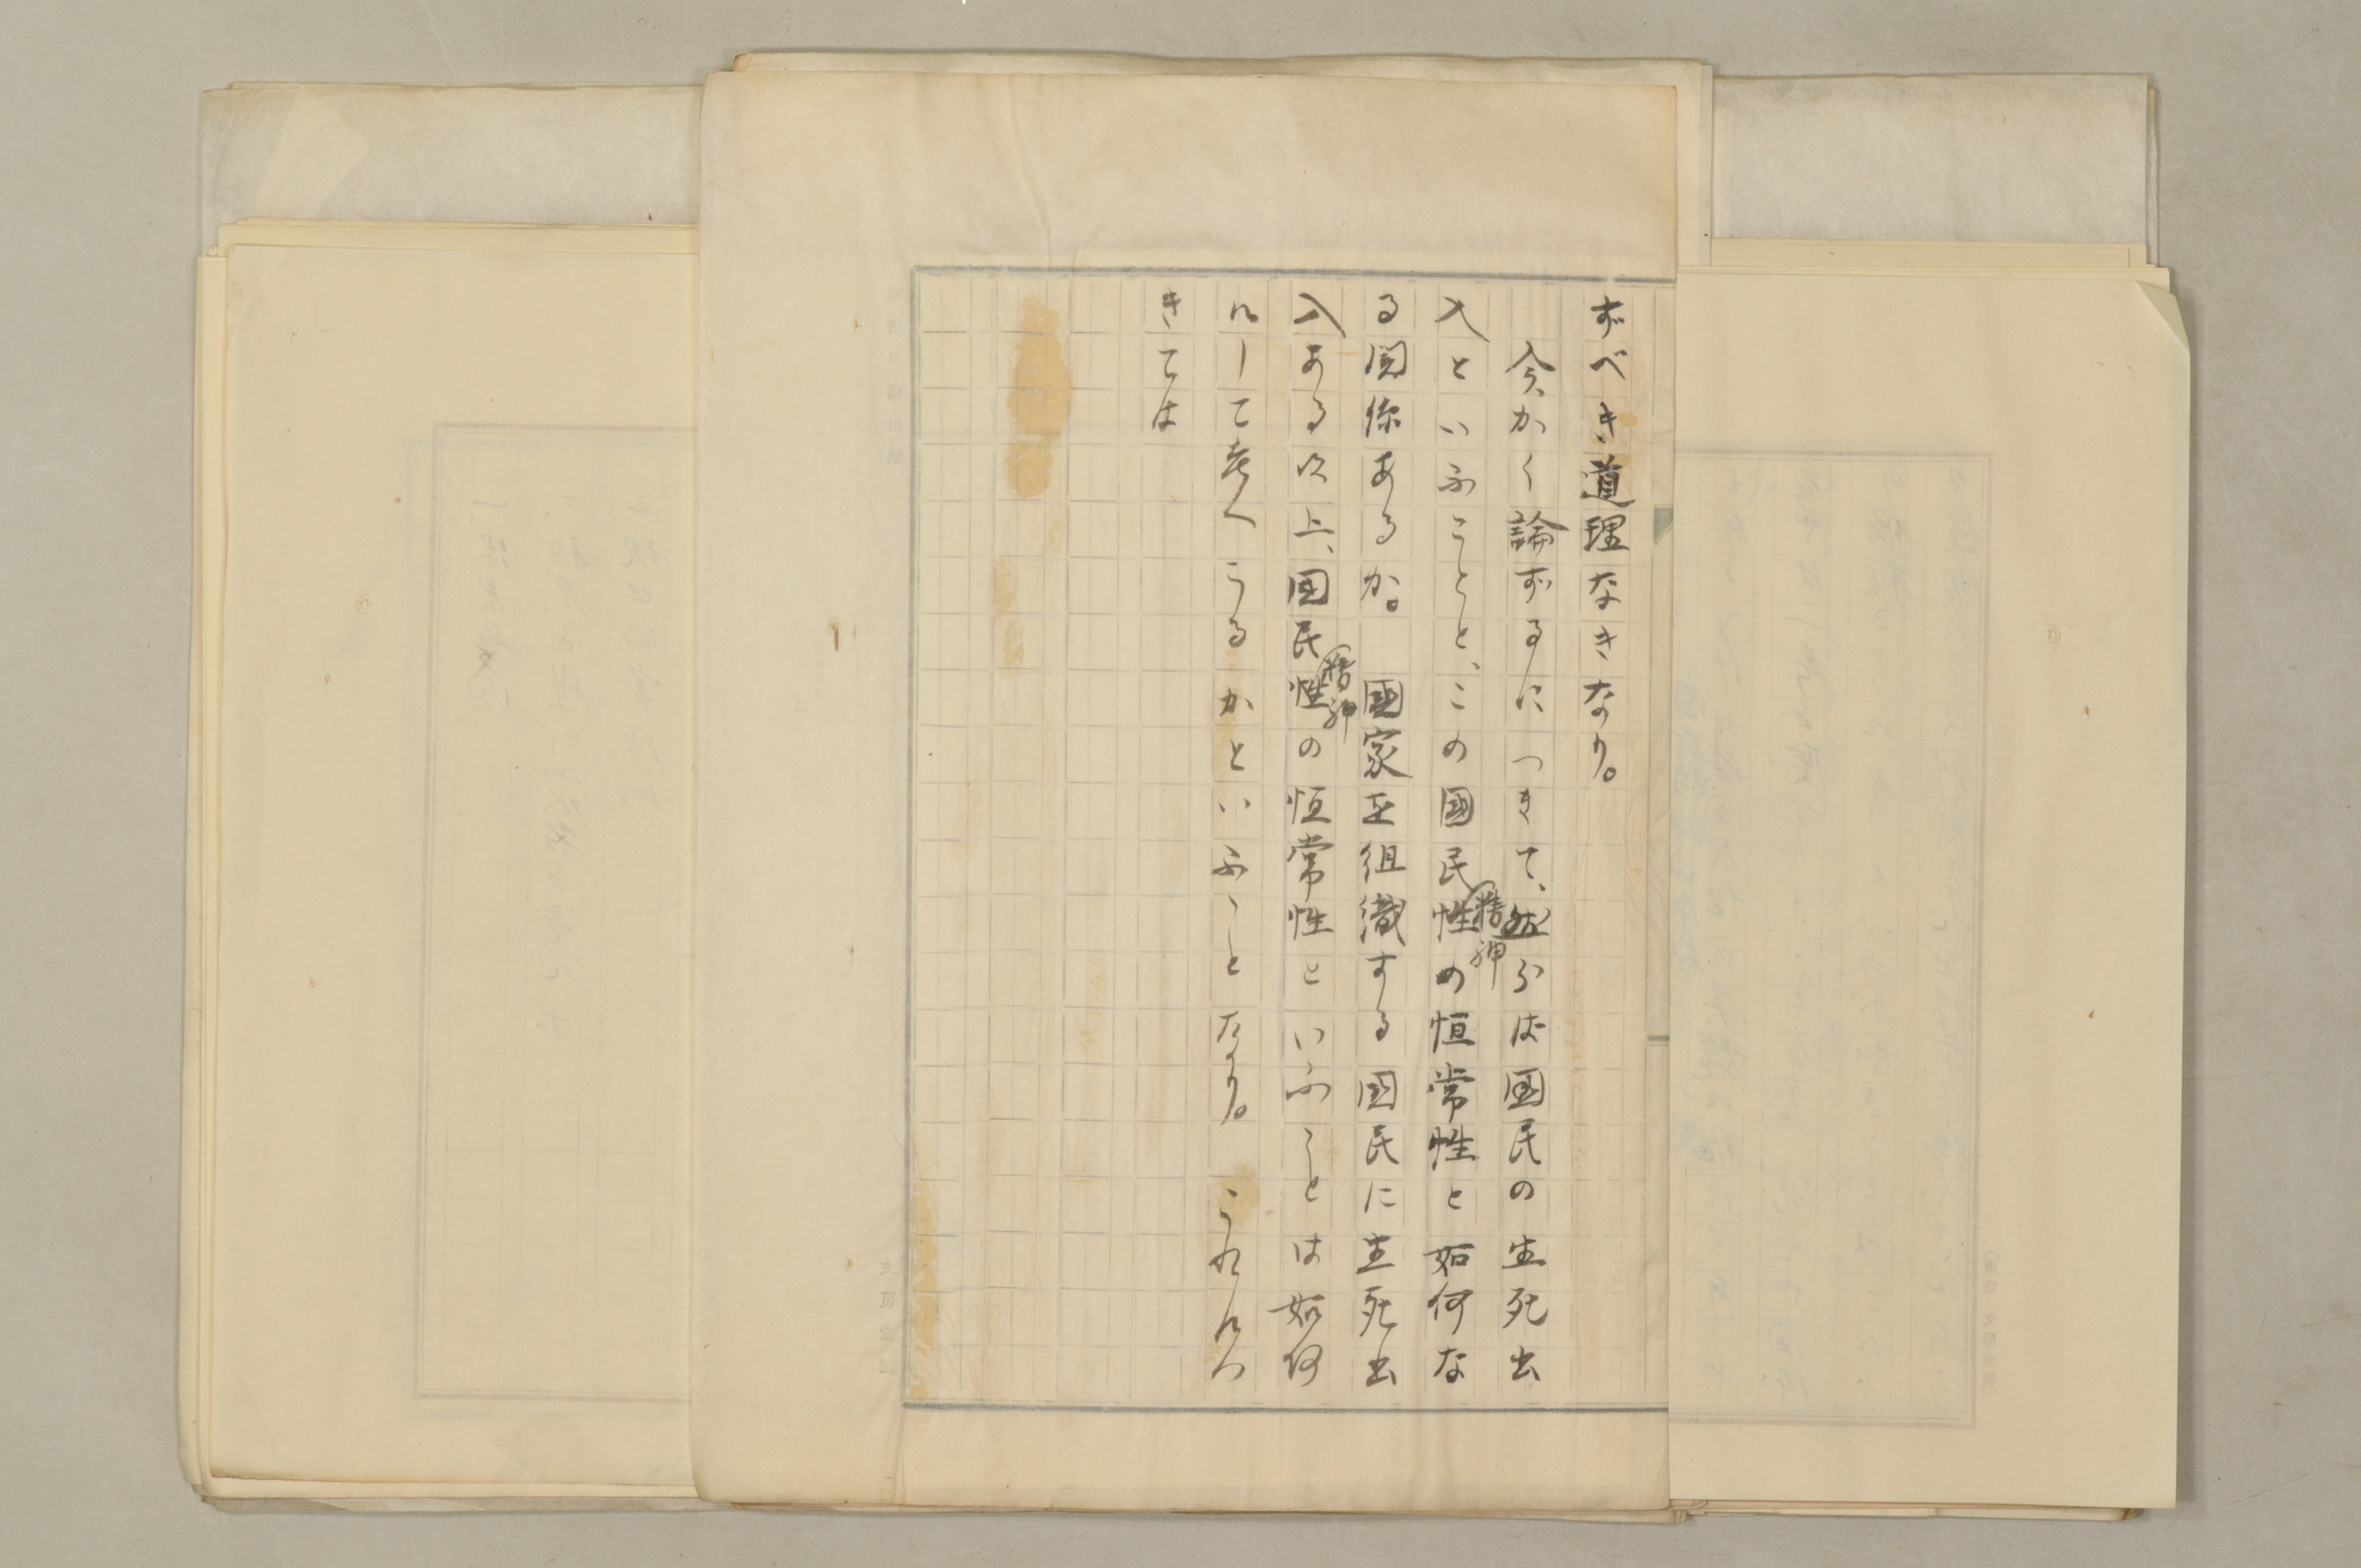 ずべき道理なきなり。
今かく論ずるにつきて、然らば国民の生死出
入といふことと、この國民性精神の恒常性と如何な
る関係あるか。　國家を組織する国民に生死出
入ある以上、国民性精神の恒常性といふことは如何
にして考へうるかといふことなり。　これにつ
きては